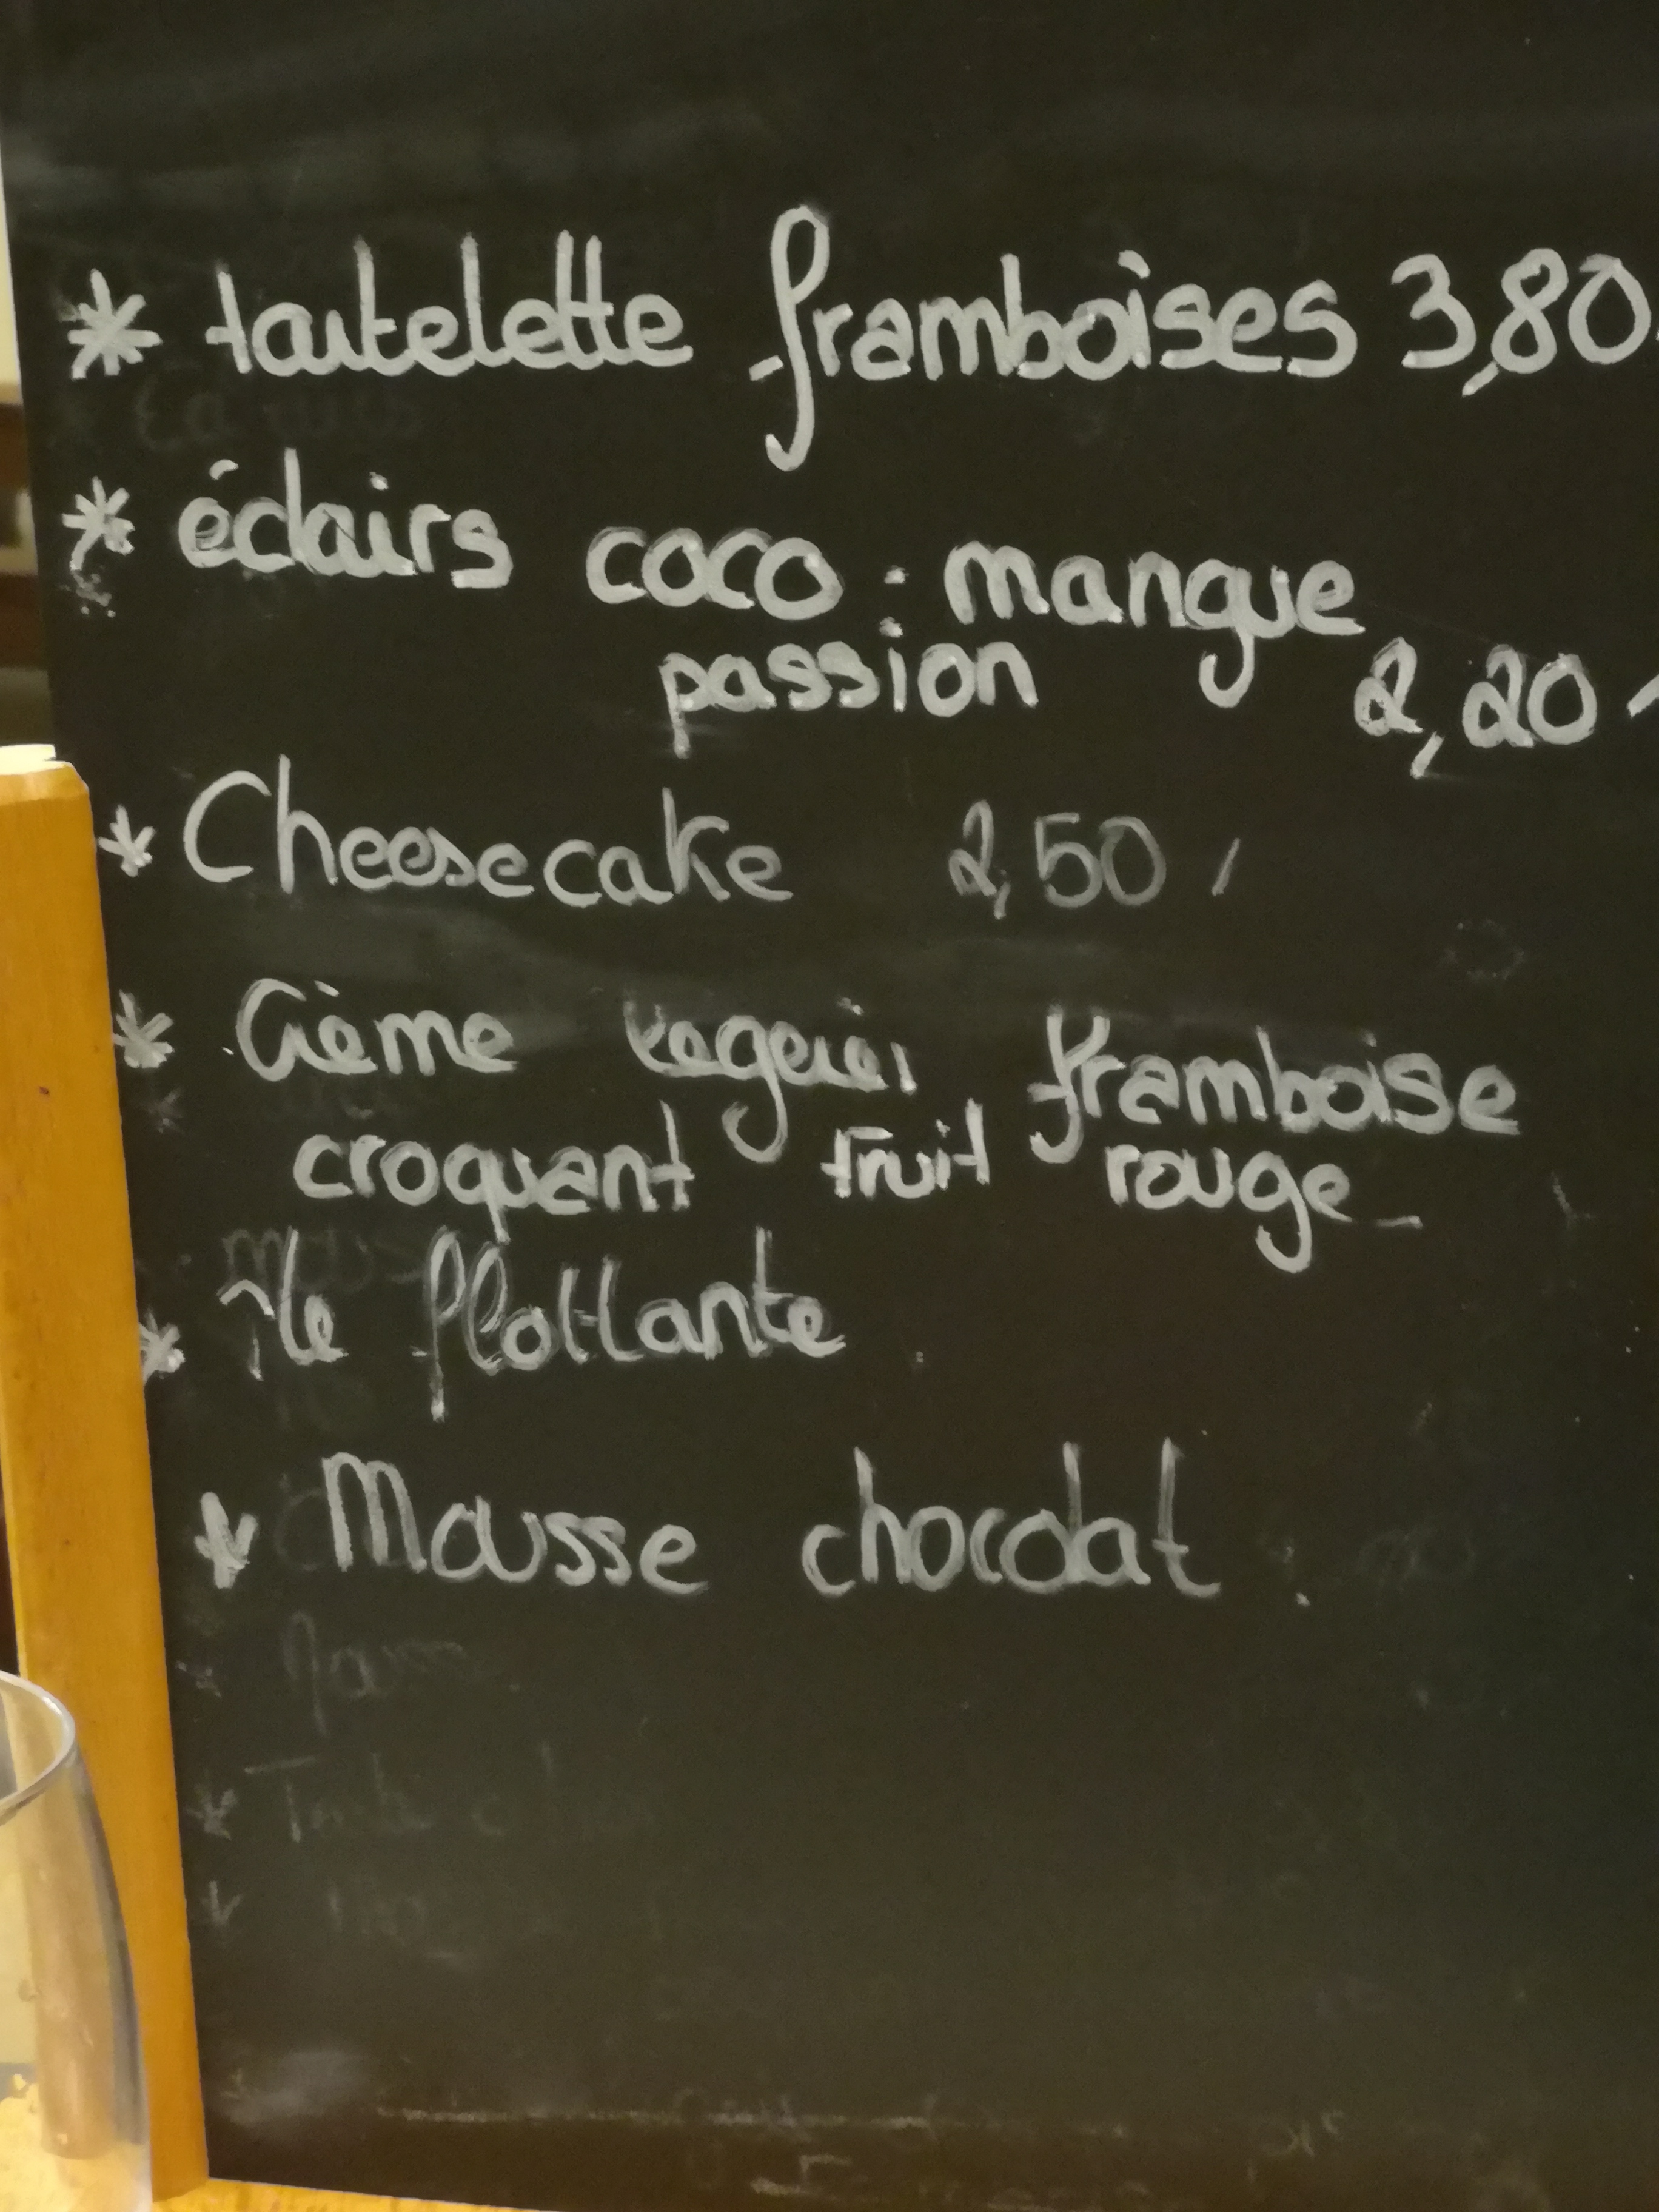 * tartelette framboises 3,80
* éclairs coco : mangue
passion 2,20
* Cheesecake 2,50
* Crème framboise
croquant fruit rouge
* île flottante
* Mousse chocolat